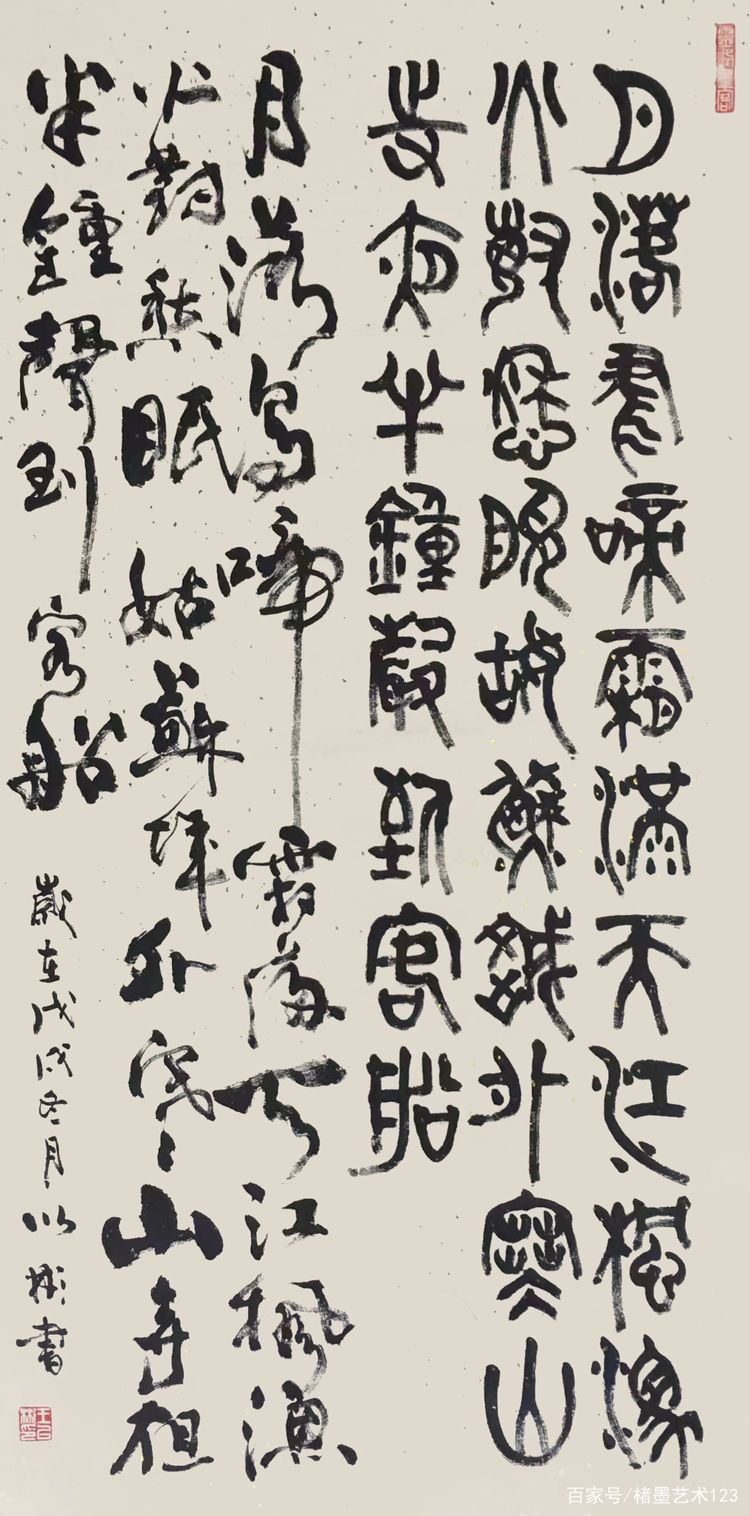 月落烏啼霜滿天江楓漁
火對愁眠姑蘇城外寒山
寺夜半鐘聲到客船
月落烏啼霜滿天江楓漁
火對愁眠姑蘇城外寒山寺夜
半鐘聲到客船
歲在戊戌冬月以彬書
百家号/楮墨艺术123